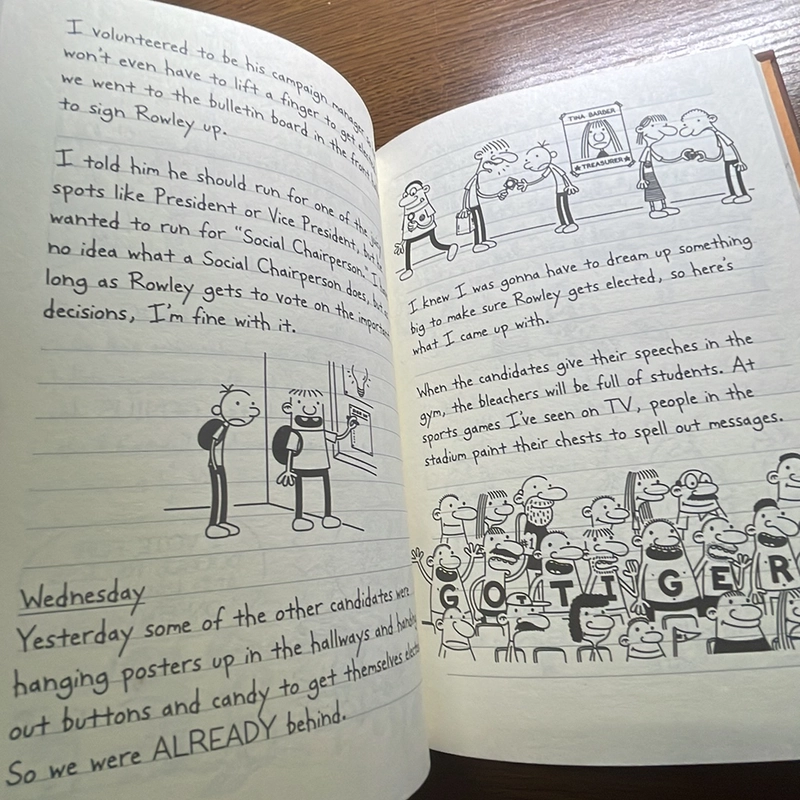 I volunteered to be his campaign manager
won't even have to lift a finger to get
we went to the bulletin board in the front
to sign Rowley up.
I told him he should run for one of the
spots like President or Vice President, but
wanted to run for "Social Chairperson."
no idea what a Social Chairperson does, but
long as Rowley gets to vote on the important
decisions, I'm fine with it.
Wednesday
Yesterday some of the other candidates were
hanging posters up in the hallways and handing
out buttons and candy to get themselves elected.
So we were ALREADY behind.
TINA BARBER
TREASURER
I knew I was gonna have to dream up something
big to make sure Rowley gets elected, so here's
what I came up with.
When the candidates give their speeches in the
gym, the bleachers will be full of students. At
sports games I've seen on TV, people in the
stadium paint their chests to spell out messages.
#1
G O T I G E R